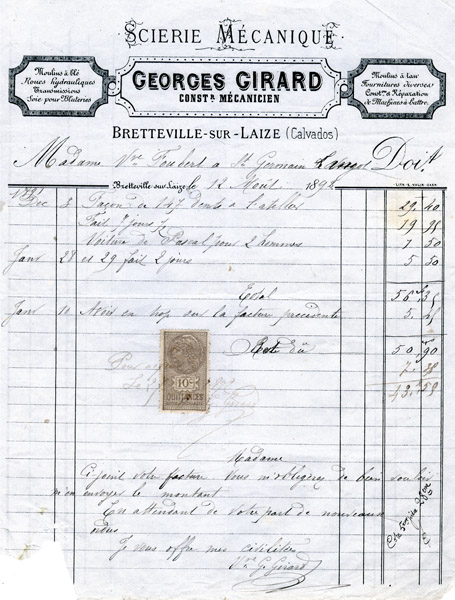 SCIERIE MÉCANIQUE
Moulins à blé
Roues hydrauliques
Transmissions
Soie pour Bluteries
GEORGES GIRARD
CONSTR MÉCANICIEN
Moulins à tan
Fournitures diverses
Constn et Réparation
de Machines à battre.
BRETTEVILLE-SUR-LAIZE (Calvados)
Madame Vve Foubert a St Germain Doit
Bretteville-sur-Laize, le 12 189
Dec 29 40
Fait 7 jours 19 25
Voiture de pour 2 hommes 7 50
Janv 28 et 29 fait 2 jours 5 50
Total
Janv en trop sur la facture précédente 5
Reste dû 50 90
10c
QUITTANCES
43
Madame
Ci-joint votre facture. Vous m'obligerez de bien vouloir
m'en envoyer le montant
En attendant de votre part de nouveaux
Je vous offre mes civilités
G. Girard